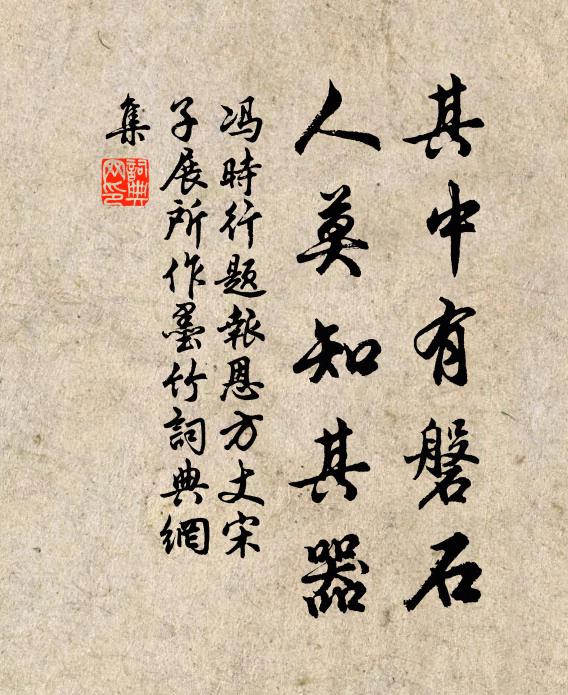 其中有磐石
人莫知其器
冯時行題報恩方丈宋
子展所作墨竹詞典網
集
詞典
网印